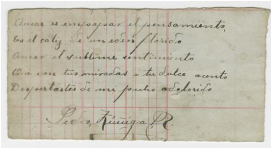 Amor es empapar el pensamiento
Es el caliz de un edén florido
Amor el sublime sentimiento
Que con tus miradas y tu dulce acento
Despertastes de mi pecho adolorido
Pedro Zúñiga